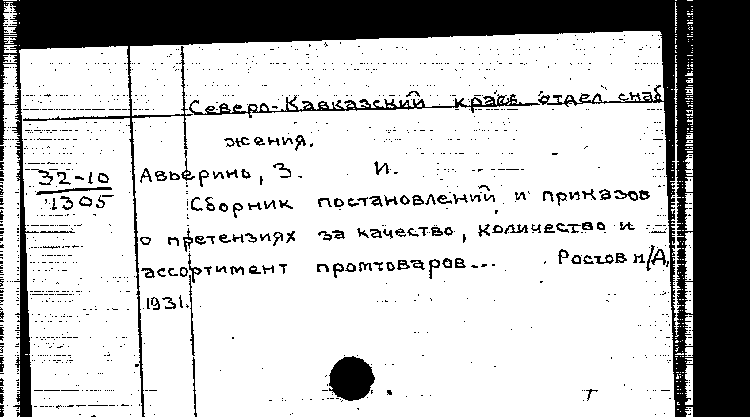 Северо-Кавказский краев. отдел снаб
жения.
32-10
1305
Авьерино, З. И.
Сборник постановлений и приказов
о претензиях за качество, количество и
ассортимент промтоваров... Ростов н/Д,
1931.
т